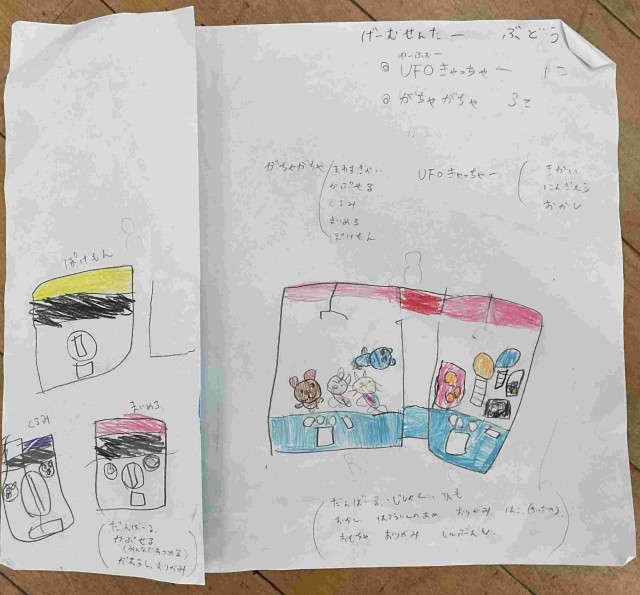 げーむせんたー ぶどう
ゆーふぉー
◎ UFOきゃっちゃー 1こ
◎ がちゃがちゃ 3こ
がちゃがちゃ
かぷせる
くるみ
まいめろ
ぽけもん
UFOきゃっちゃー
きかい
にんぎょう
おかし
ぽけもん
くるみ
まいめろ
だんぼーる
かぷせる
(みんなであつめる)
がむてーぷ、おりがみ
だんぼーる、じしゃく、ひも
おかし おりがみ はこ
おもちゃ おりがみ しんぶんし